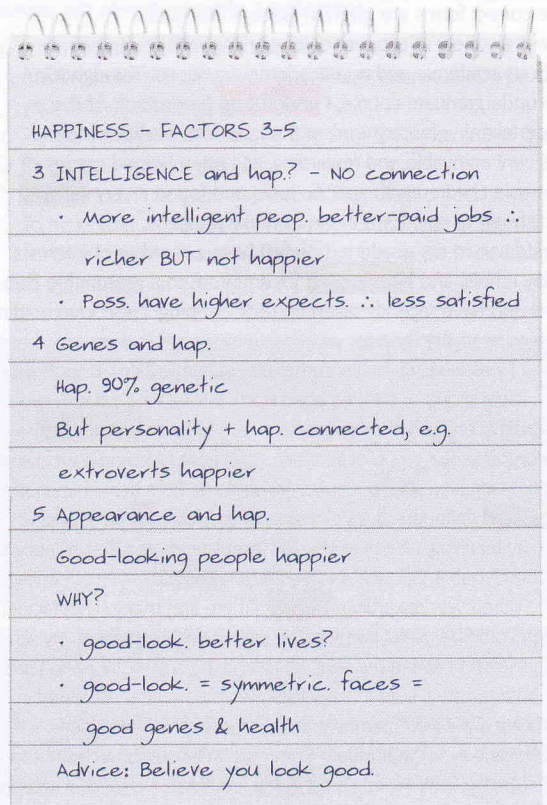 HAPPINESS - FACTORS 3-5
3 INTELLIGENCE and hap.? - NO connection
· More intelligent peop. better-paid jobs ∴
richer BUT not happier
· Poss. have higher expects. ∴ less satisfied
4 Genes and hap.
Hap. 90% genetic
But personality + hap. connected, e.g.
extroverts happier
5 Appearance and hap.
Good-looking people happier
WHY?
· good-look. better lives?
· good-look. = symmetric. faces =
good genes & health
Advice: Believe you look good.